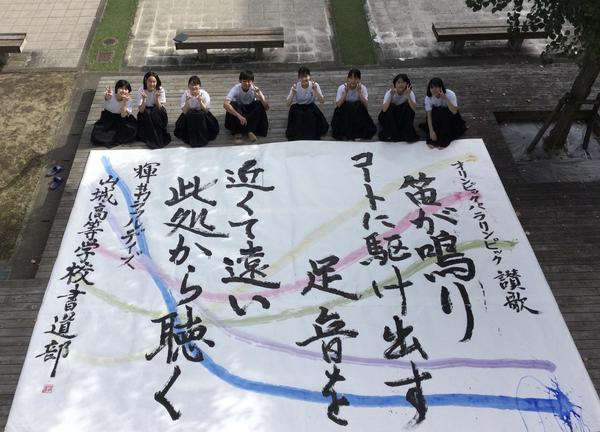 オリンピックパラリンピック 讃歌
笛が鳴り
コートに駆け出す
足音を
近くて遠い
此処から聴く
山城高等学校書道部